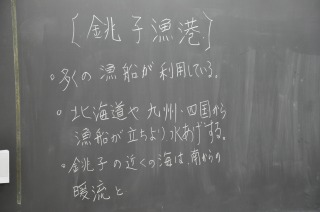 [銚子漁港]
・多くの漁船が利用している。
・北海道や九州・四国から
漁船が立ちより水あげする。
・銚子の近くの海は、南からの
暖流と